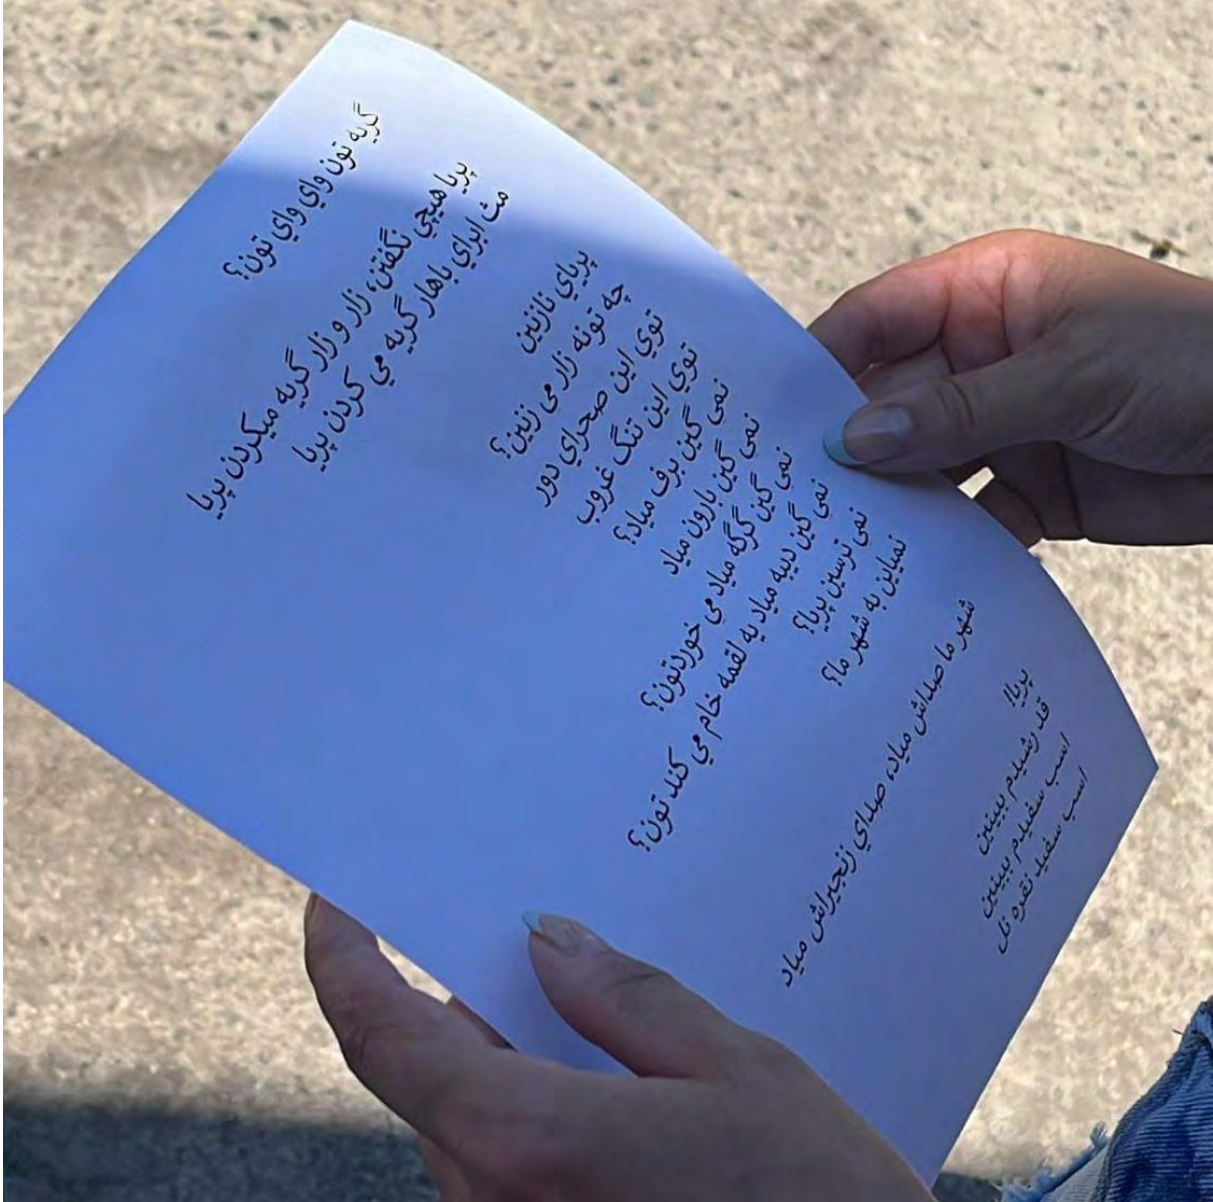 گریه تون وای وای تون؟
پریا هیچی نگفتن، زار و زار گریه میکردن پریا
مث ابرای باهار گریه می کردن پریا
پریای نازنین
چه تونه زار می زنین؟
توی این صحرای دور
توی این تنگ غروب
نمی گین برف میاد؟
نمی گین بارون میاد
نمی گین گرگه میاد می خوردتون؟
نمی گین دیبه میاد یه لقمه خام می کند تون؟
نمی ترسین پریا؟
نمیاین به شهر ما؟
شهر ما صداش میاد، صدای زنجیراش میاد
پریا!
قد رشیدم ببینین
اسب سفیدم ببینین
اسب سفید نقره نل